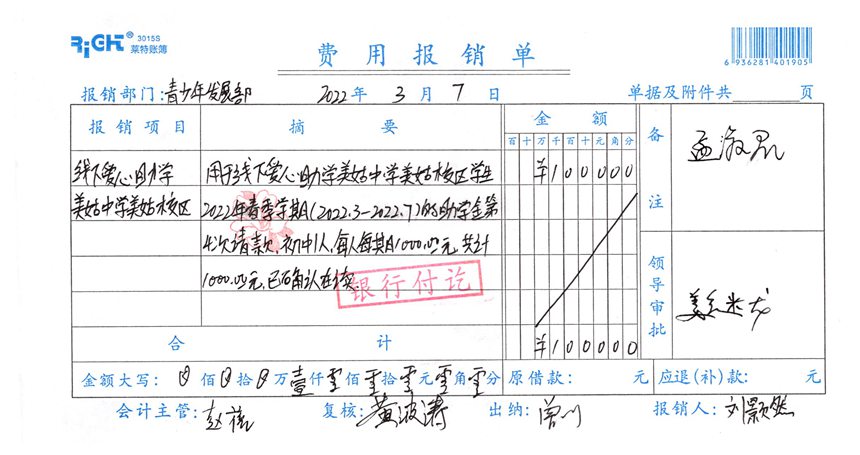 RiGHT® 3015S
莱特账簿
费用报销单
6 936281 401905
报销部门:青少年发展部 2022年3月7日 单据及附件共 页
报销项目 摘要 金额 备注
百十万千百十元角分
线下爱心助学 用于线下爱心助学美姑中学美姑校区学生 ¥100000
美姑中学美姑校区 2022年春季学期(2022.3-2022.7)的助学金第
4次请款,初中1人,每人每期1000.00元,共计
1000.00元,已确认在读
银行付讫
领导审批
合计 ¥100000
金额大写: 0佰0拾0万壹仟零佰零拾零元零角零分 原借款: 元 应退(补)款: 元
会计主管: 复核:黄波涛 出纳:曾川 报销人:刘颢然